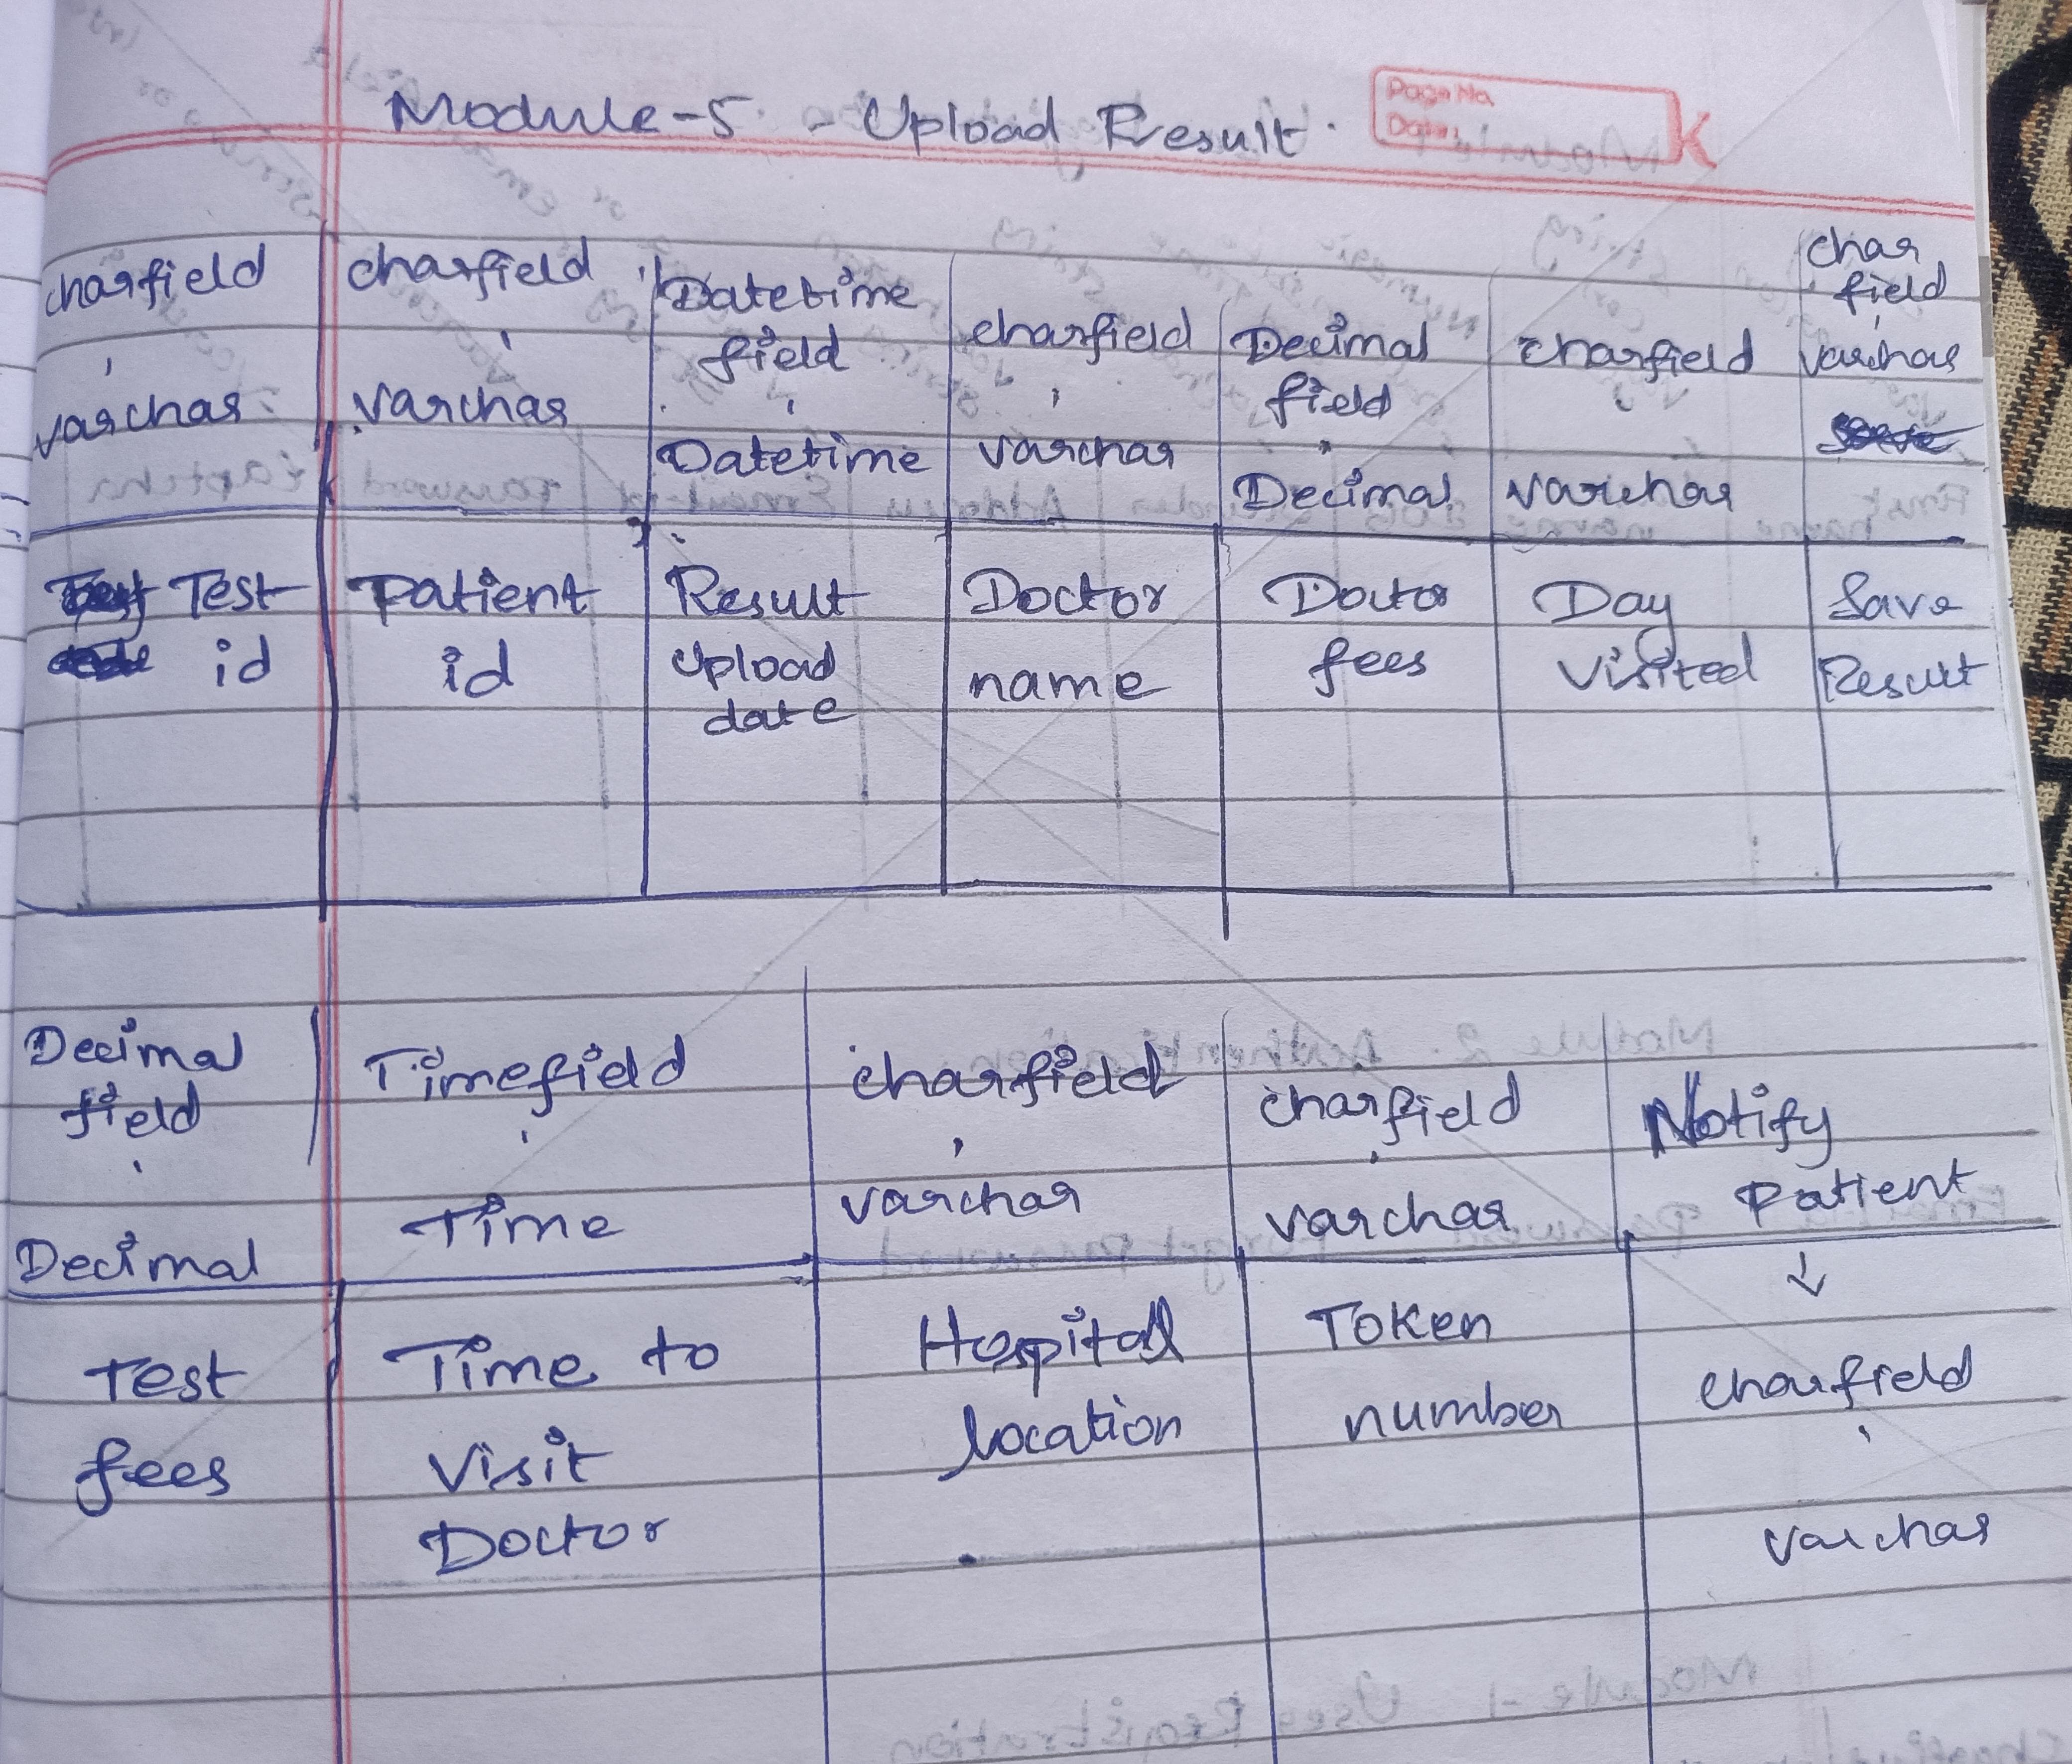 Module-5 - Upload Result.
Page No.
Date:
K
charfield
,
varchar
charfield
,
varchar
Datetime
field
,
Datetime
charfield
,
varchar
Decimal
field
,
Decimal
charfield
,
varchar
char
field
,
varchar
Test
id
Patient
id
Result
Upload
date
Doctor
name
Doctor
fees
Day
visited
Save
Result
Decimal
field
,
Decimal
Timefield
,
Time
charfield
,
varchar
charfield
,
varchar
Notify
Patient
↓
charfield
,
varchar
Test
fees
Time to
visit
Doctor
Hospital
location
Token
number